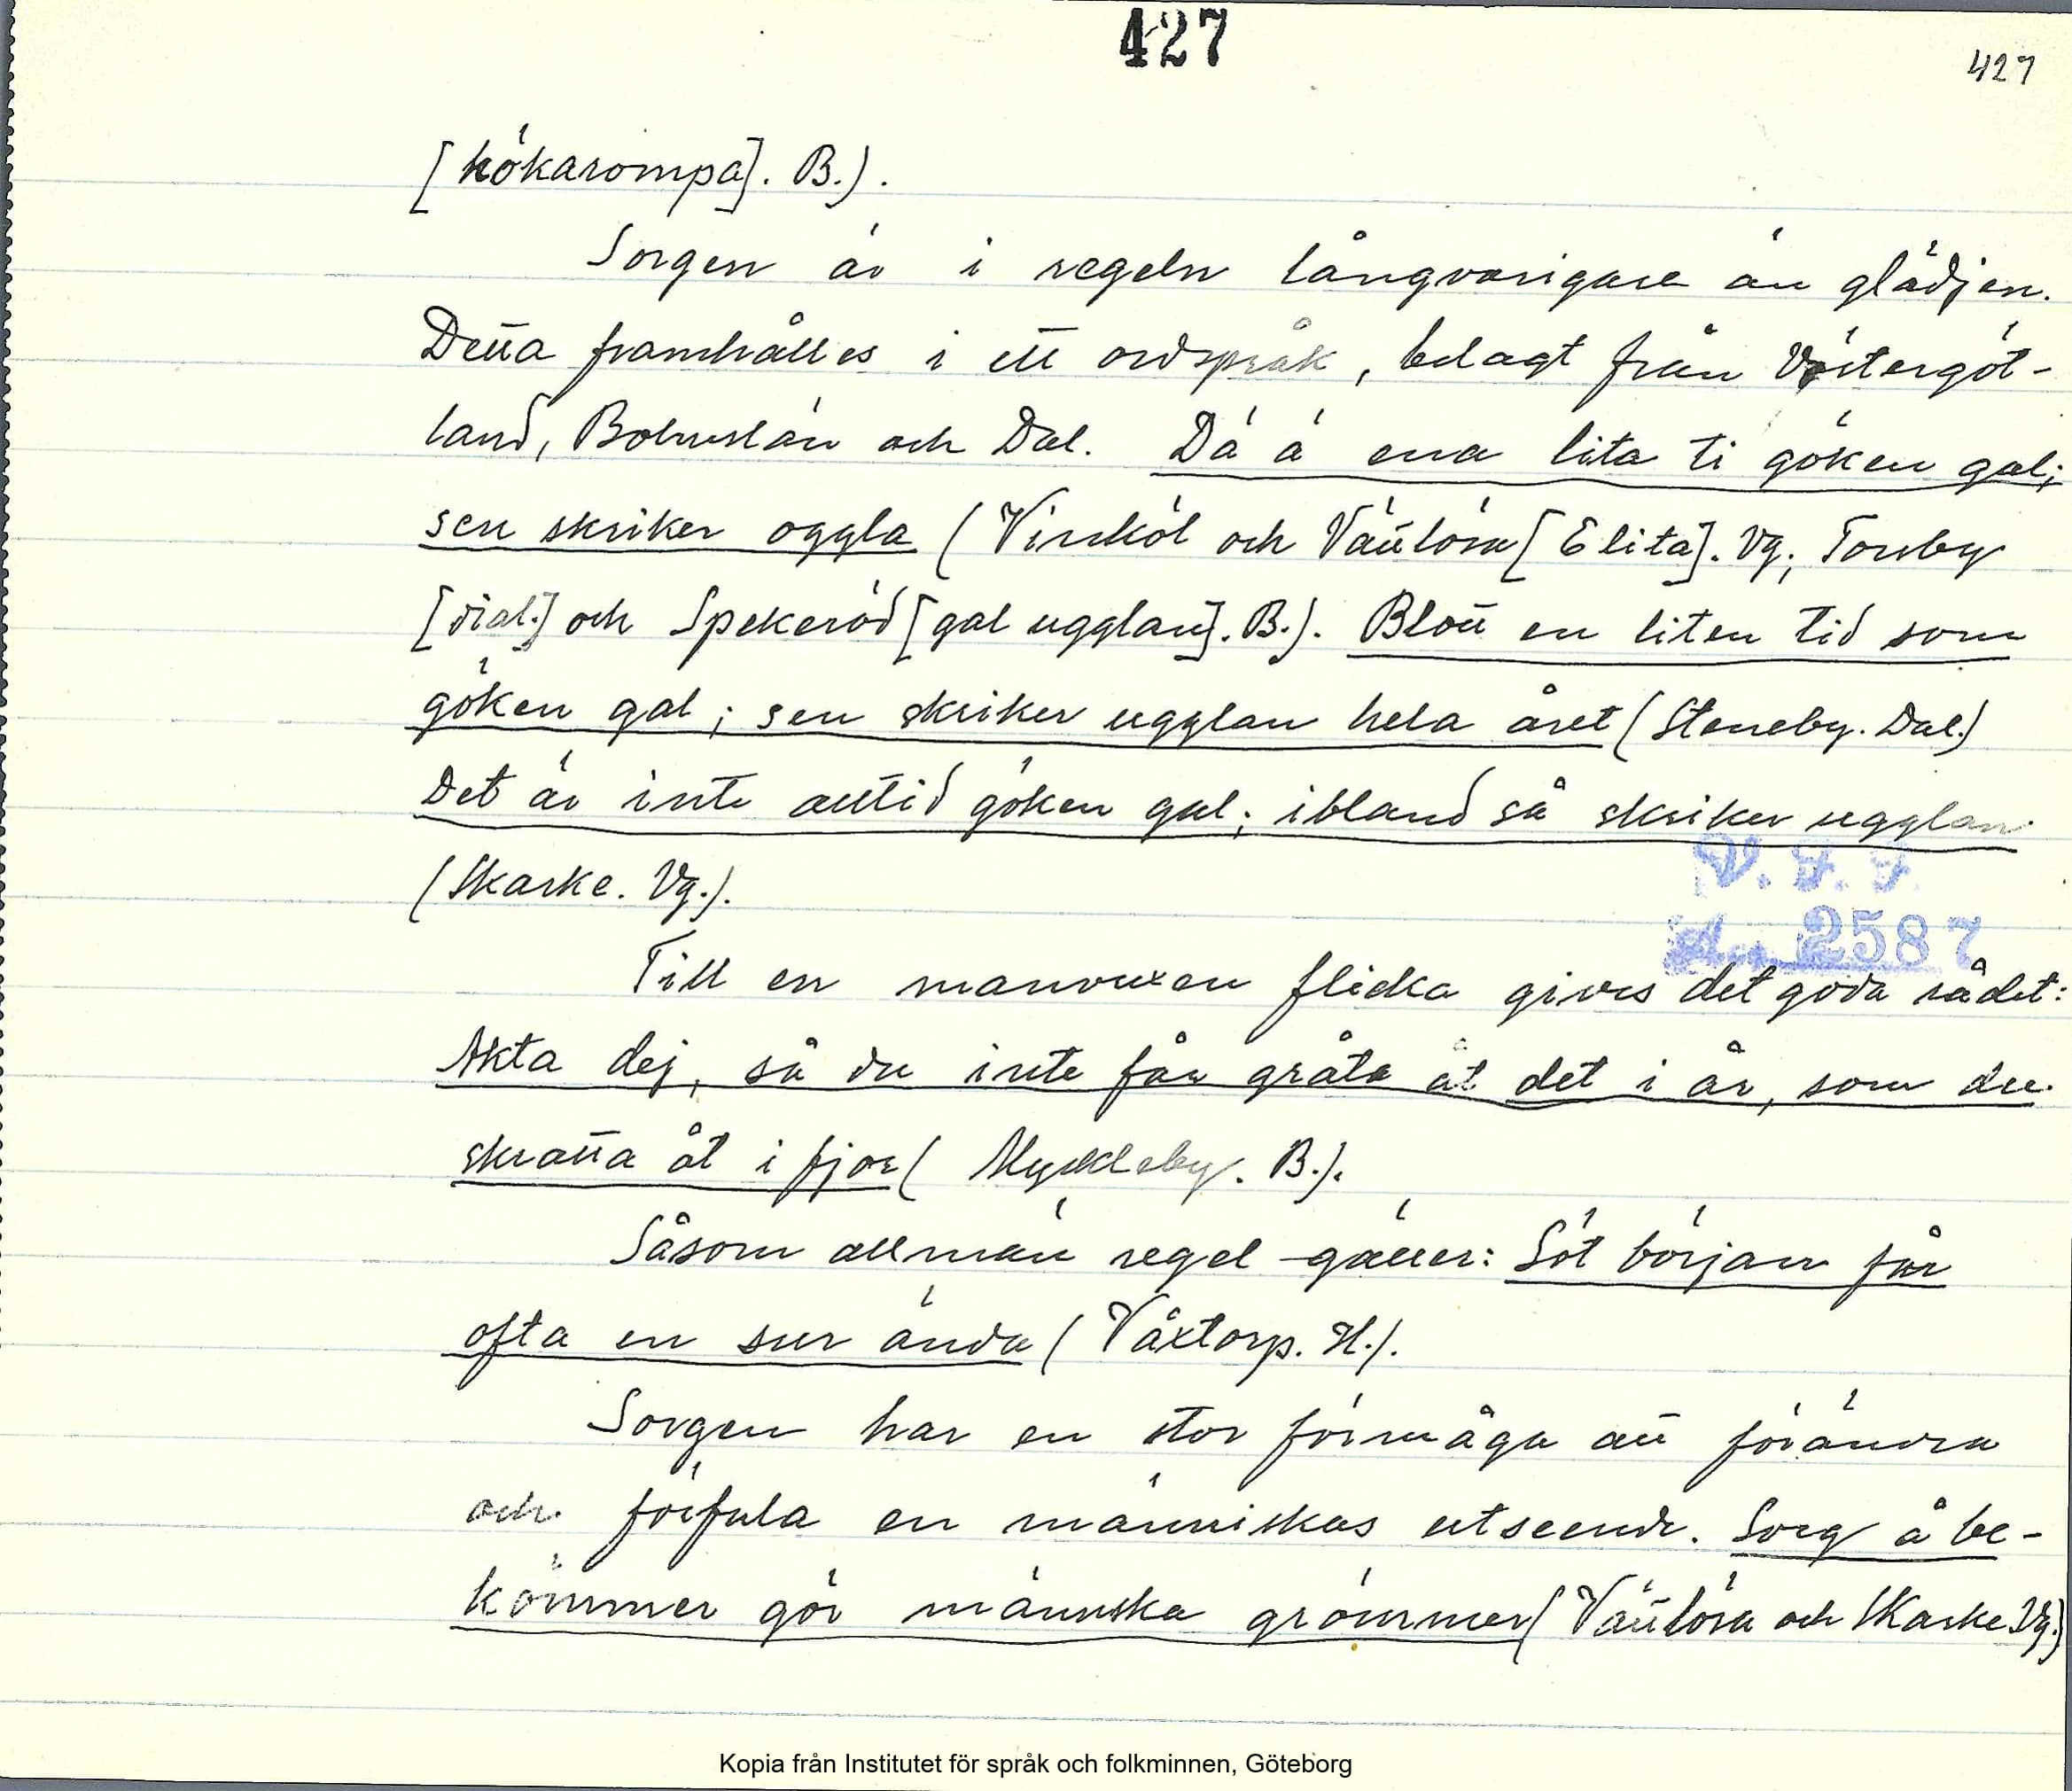 427
427
[hökarompa]. B.).
Sorgen är i regeln långvarigare än glädjen.
Detta framhålles i ett ordspråk, belagt från Västergöt-
land, Bohuslän och Dal. Dä ä ena lita ti göken gal;
sen skriker oggla (Vinköl och Vättlösa [E lita]. Vg.; Torsby
[dial.] och Spekeröd [gal ugglan]. B.). Blott en liten tid som
göken gal; sen skriker ugglan hela året (Steneby. Dal.)
Det är inte alltid göken gal; ibland så skriker ugglan
(Skarke. Vg.).
V. F. F.
2587
Till en manvuxen flicka gives det goda rådet:
Akta dej, så du inte får gråta åt det i år, som du
skratta åt i fjor (Myckleby. B.).
Såsom allmän regel gäller: Söt början får
ofta en sur ända (Våxtorp. H.).
Sorgen har en stor förmåga att förändra
och förfula en människas utseende. Sorg å be-
kömmer gör männska grömmer (Vättlösa och Skarke Vg.)
Kopia från Institutet för språk och folkminnen, Göteborg